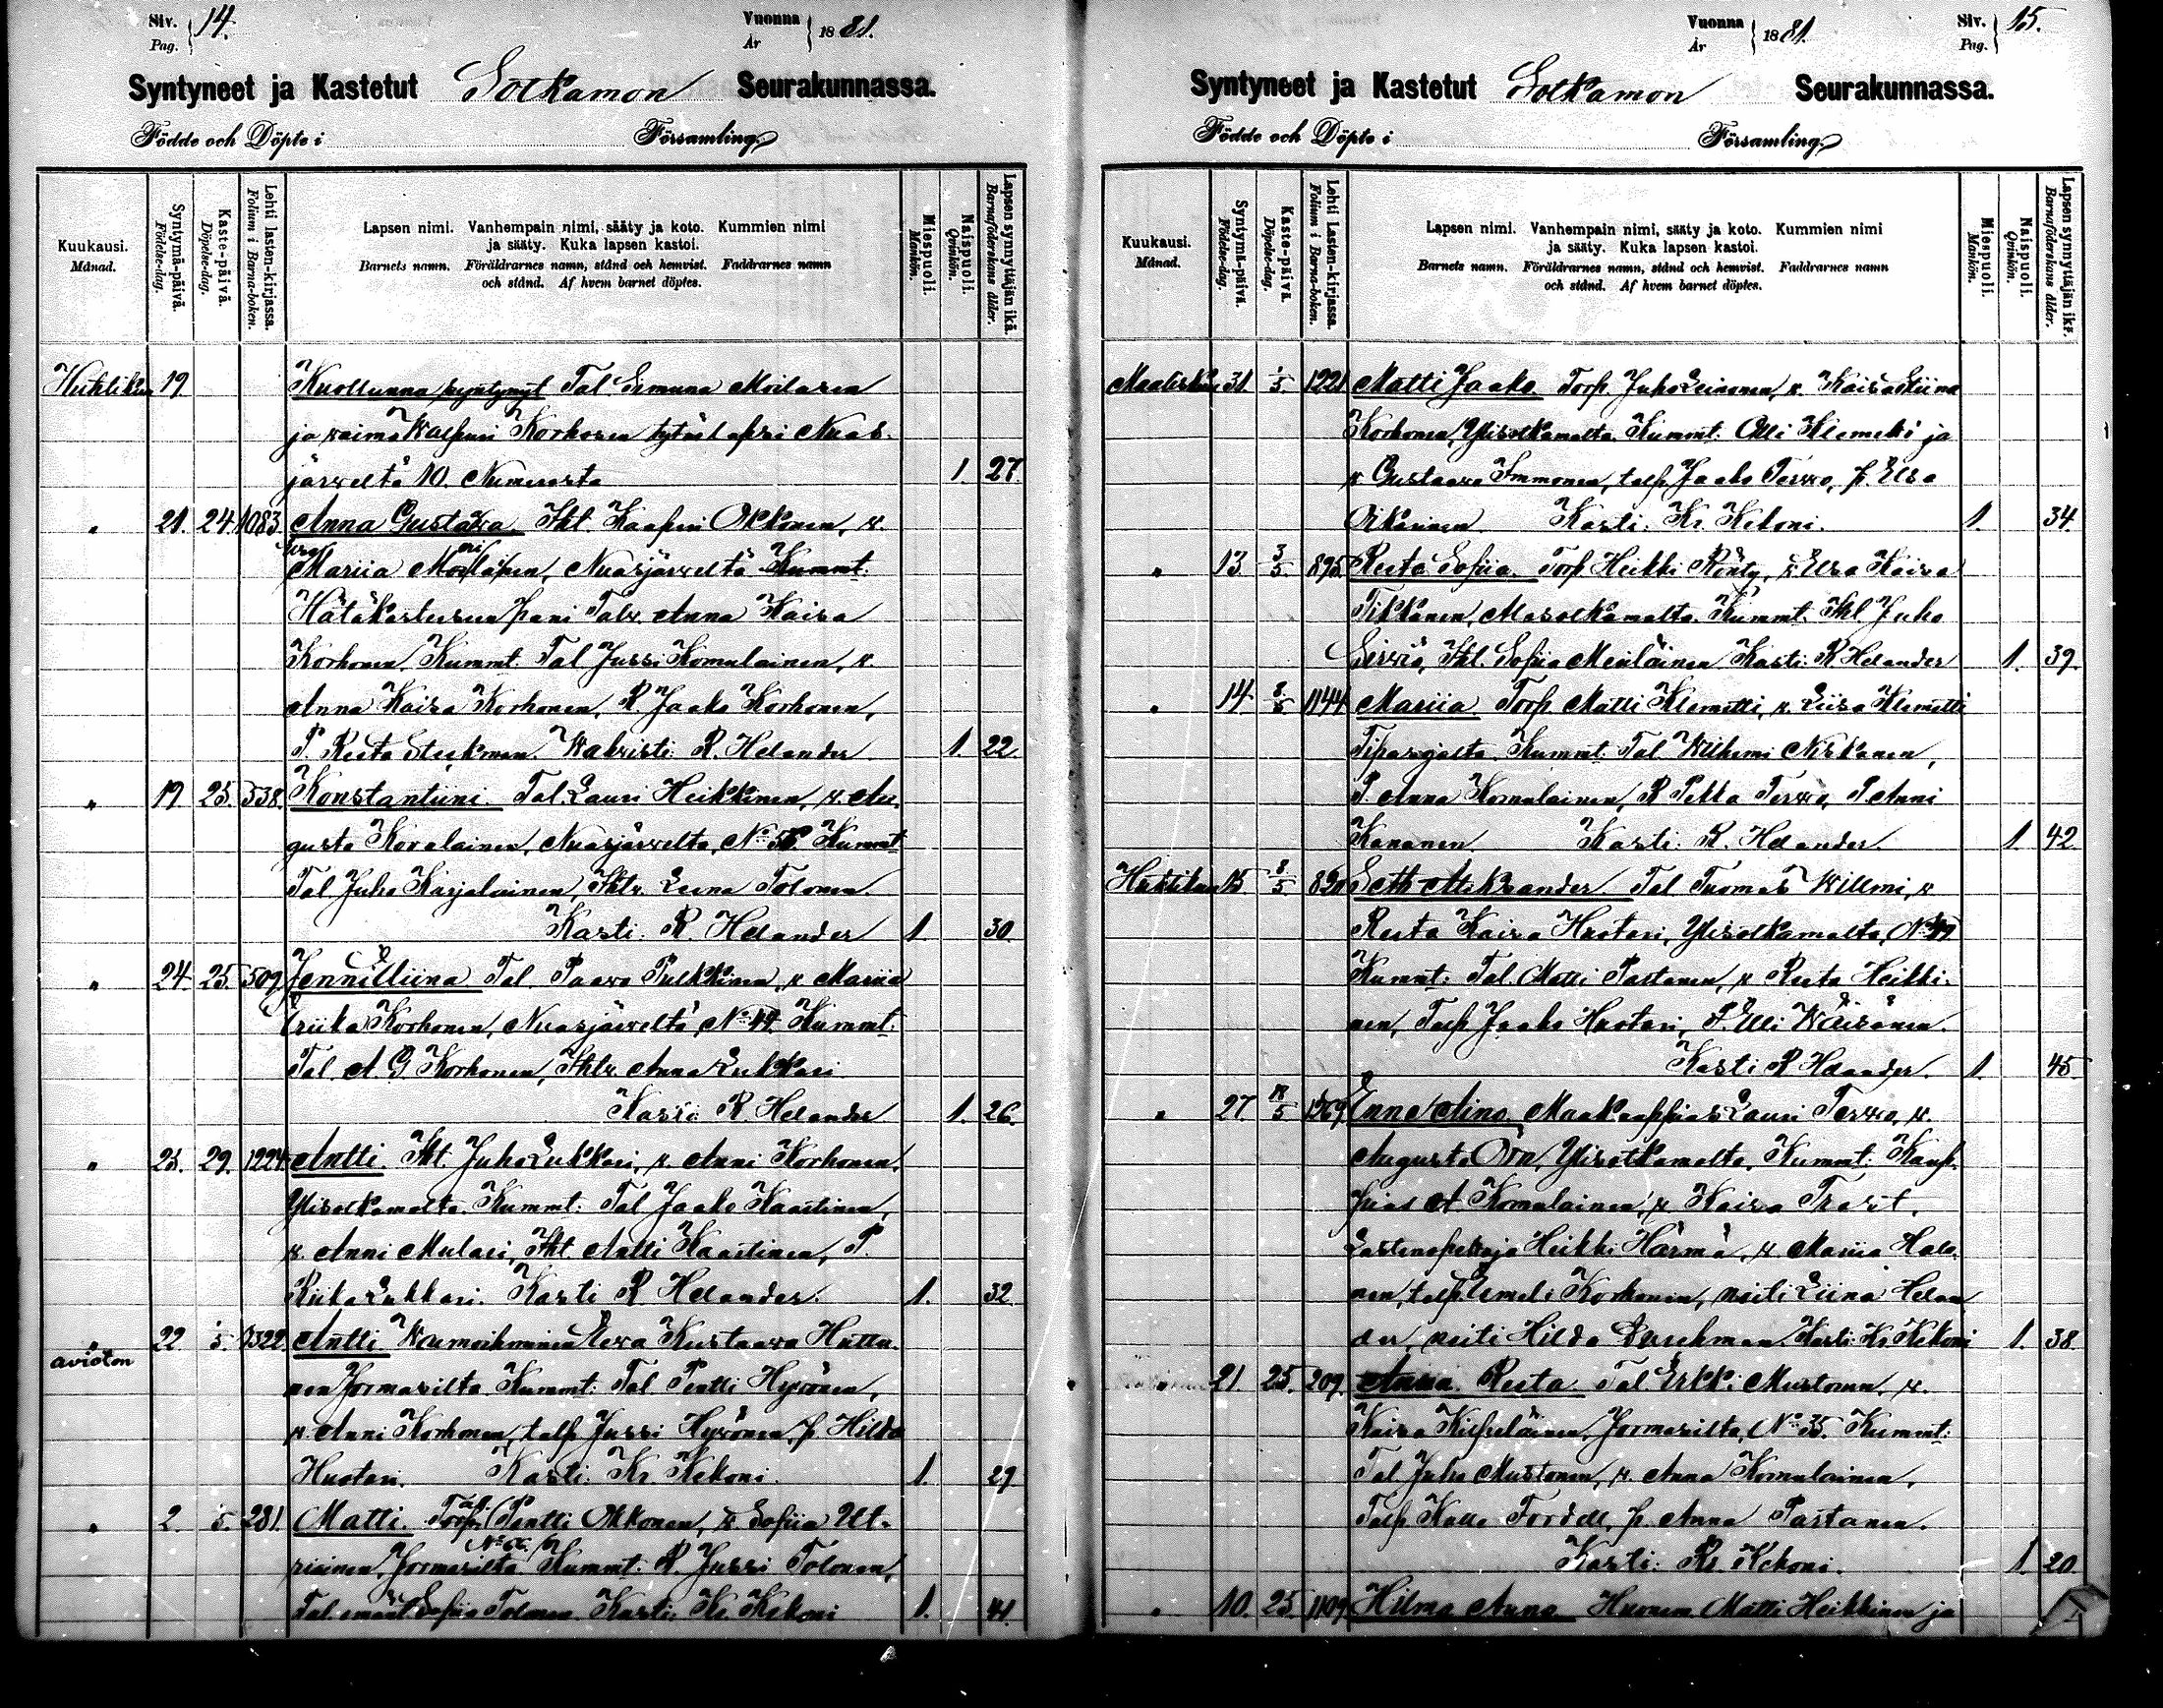 Siv. 14.
Pag.
Vuonna 1881.
År
Syntyneet ja Kastetut Sotkamon Seurakunnassa.
Födde och Döpte i Församling.
Kuukausi.
Månad.
Syntymä-päivä.
Födelse-dag.
Kaste-päivä.
Döpelse-dag.
Lehti lasten-kirjassa.
Folium i Barna-boken.
Lapsen nimi. Vanhempain nimi, sääty ja koto. Kummien nimi
ja sääty. Kuka lapsen kastoi.
Barnets namn. Föräldrarnes namn, stånd och hemvist. Faddrarnes namn
och stånd. Af hvem barnet döptes.
Miespuoli.
Mankön.
Naispuoli.
Qvinkön.
Lapsen synnyttäjän ikä.
Barnaföderskans ålder.
Huhtikuu 19 Kuollunna syntynyt Tal. Moilasen
ja waimo Korhosen Nuas-
järweltä 10. Numerosta 1. 27
" 21. 24. 1083 Anna Gustawa Itkl. Kaapri Okkonen, w.
Mariia Nuasjärweltä Kummt:
Hätäkasteesen pani Talw. Anna Kaisa
Korhonen. Kummt. Tal Jussi Komulainen, w.
Anna Kaisa Korhonen, R. Jaako Korhonen,
P. Reeta R. Helander 1. 22.
" 19 25. 538. Konstantiini Tal. Lauri Heikkinen, w. Au-
gusta Nuasjärwelta, No Kummt
Tal. Juho Karjalainen, Leena Tolonen.
Kasti: R. Helander 1. 30.
" 24. 25. 509 Jenni Miina Tal Paawo Pulkkinen, w Mariia
Eriika Korhonen, Nuasjärweltä, No 44. Kummt:
Tal. A G Korhonen, Anna Lukkari
Kasti: R. Helander 1. 26.
" 25. 29. 1224 Antti. Itkl. Juho Lukkari, w. Anni Korhonen,
Ylisotkamolta. Kummt: Tal Jaako Kaartinen,
w. Anni Mulari, Itkl Antti Kaartinen, P.
Riika Lukkari. Kasti R Helander. 1. 32.
avioton 22. 1/5. 1322 Antti Waimoihminen Eewa Kustaawa Huttu-
nen Jormasilta. Kummt: Tal Pentti Hyvönen,
w. Anni Korhonen, talp Jussi Hyvönen, p Hilda
Huotari. Kasti: Kr. Kekoni. 1. 29
" 2. 5. 281 Matti. Pentti Okkonen, w. Sofiia Ult-
riainen, Jormasilta. Kummt: R. Jussi Tolonen,
Tal. emänt Sofiia Tolonen. Kasti: Kr. Kekoni 1. 41.
Vuonna 1881.
År
Siv. 15.
Pag.
Syntyneet ja Kastetut Sotkamon Seurakunnassa.
Födde och Döpte i Församling.
Kuukausi.
Månad.
Syntymä-päivä.
Födelse-dag.
Kaste-päivä.
Döpelse-dag.
Lehti Lasten-kirjassa.
Folium i Barna-boken.
Lapsen nimi. Vanhempain nimi, sääty ja koto. Kummien nimi
ja sääty. Kuka lapsen kastoi.
Barnets namn. Föräldrarnes namn, stånd och hemvist. Faddrarnes namn
och stånd. Af hvem barnet döptes.
Miespuoli.
Mankön.
Naispuoli.
Qvinkön.
Lapsen synnyttäjän ikä.
Barnaföderskans ålder.
Maalisku 31. 1/5 1221 Matti Jaako. Torp. Juho Leinonen, w. Kaisa Stiina
Korhonen, Ylisotkamolta. Kummt: Olli Klemetti ja
w Gustaava Immonen, talp. Jaako Terwo, p. Elsa
Oikarinen Kasti: Kr. Kekoni. 1. 34.
" 13 3/5 895. Reeta Sofiia. Torp Heikki Rönty, w Elsa Kaisa
Tikkanen, Alasotkamolta. Kummt: Itkl Juho
Sirwiö, Itkl. Sofiia Meriläinen Kasti: R Helander 1. 39.
" 14 8/5 1144 Mariia Torp Matti Klemetti, w. Liisa Klemetti
Tipasojalta. Kummt: Tal. Wilhemi Niskanen,
P. Anna Komulainen, R Pekka Terwo, P. Anni
Kananen. Kasti: R. Helander. 1 42.
Huhtikuu 15 8/5 820 Seth Aleksander Tal Tuomas Willmi, w
Reeta Kaisa Huotari, Ylisotkamolta, No 49
Kummt: Tal. Matti Partanen, w Reeta Heikki-
nen, Talp Jaako Huotari, P. Elli Wäisänen.
Kasti R Helander. 1. 45.
" 27. 1269. Enne Aino. Maakauppias Lauri Terwo, w.
Augusta Örn, Ylisotkamolta. Kummt: Kaup-
pias A Komulainen, w Kaisa Trast,
Lastenopettaja Heikki Härmä, w Mariia Halo-
nen, talp Elmeli Korhonen, neiti Liina Helan
der, neiti Hilda Kasti: Kr. Kekoni 1. 38.
" 21. 25. 209. Anna Reeta Tal. Erkki Mustonen, w.
Kaisa Kilpeläinen, Jormasilta, No 35. Kummt:
Tal Juho Mustonen, w. Anna Komulainen,
Talp Kalle Fordell, p. Anna Partanen.
Kasti: Kr. Kekoni. 1 20.
" 10. 25. 1109 Hilma Anna Huonem. Matti Heikkinen ja